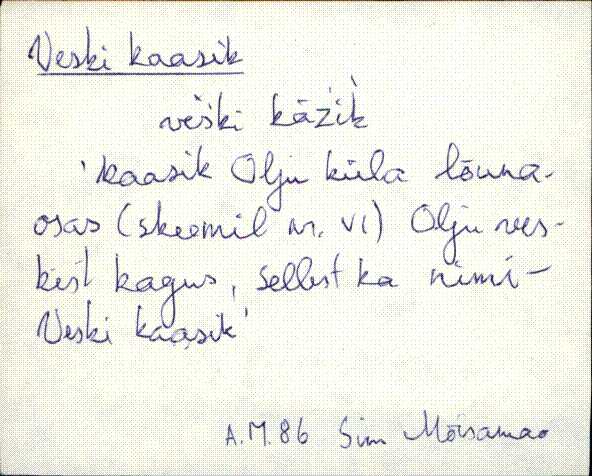 Veski kaasik
veski kāzik
'kaasik Olju küla lõuna-
osas (skeemil nr. VI) Olju ves-
kist kagus, sellest ka nimi –
Veski kaasik'
A.M. 86 Sim Mõisamaa